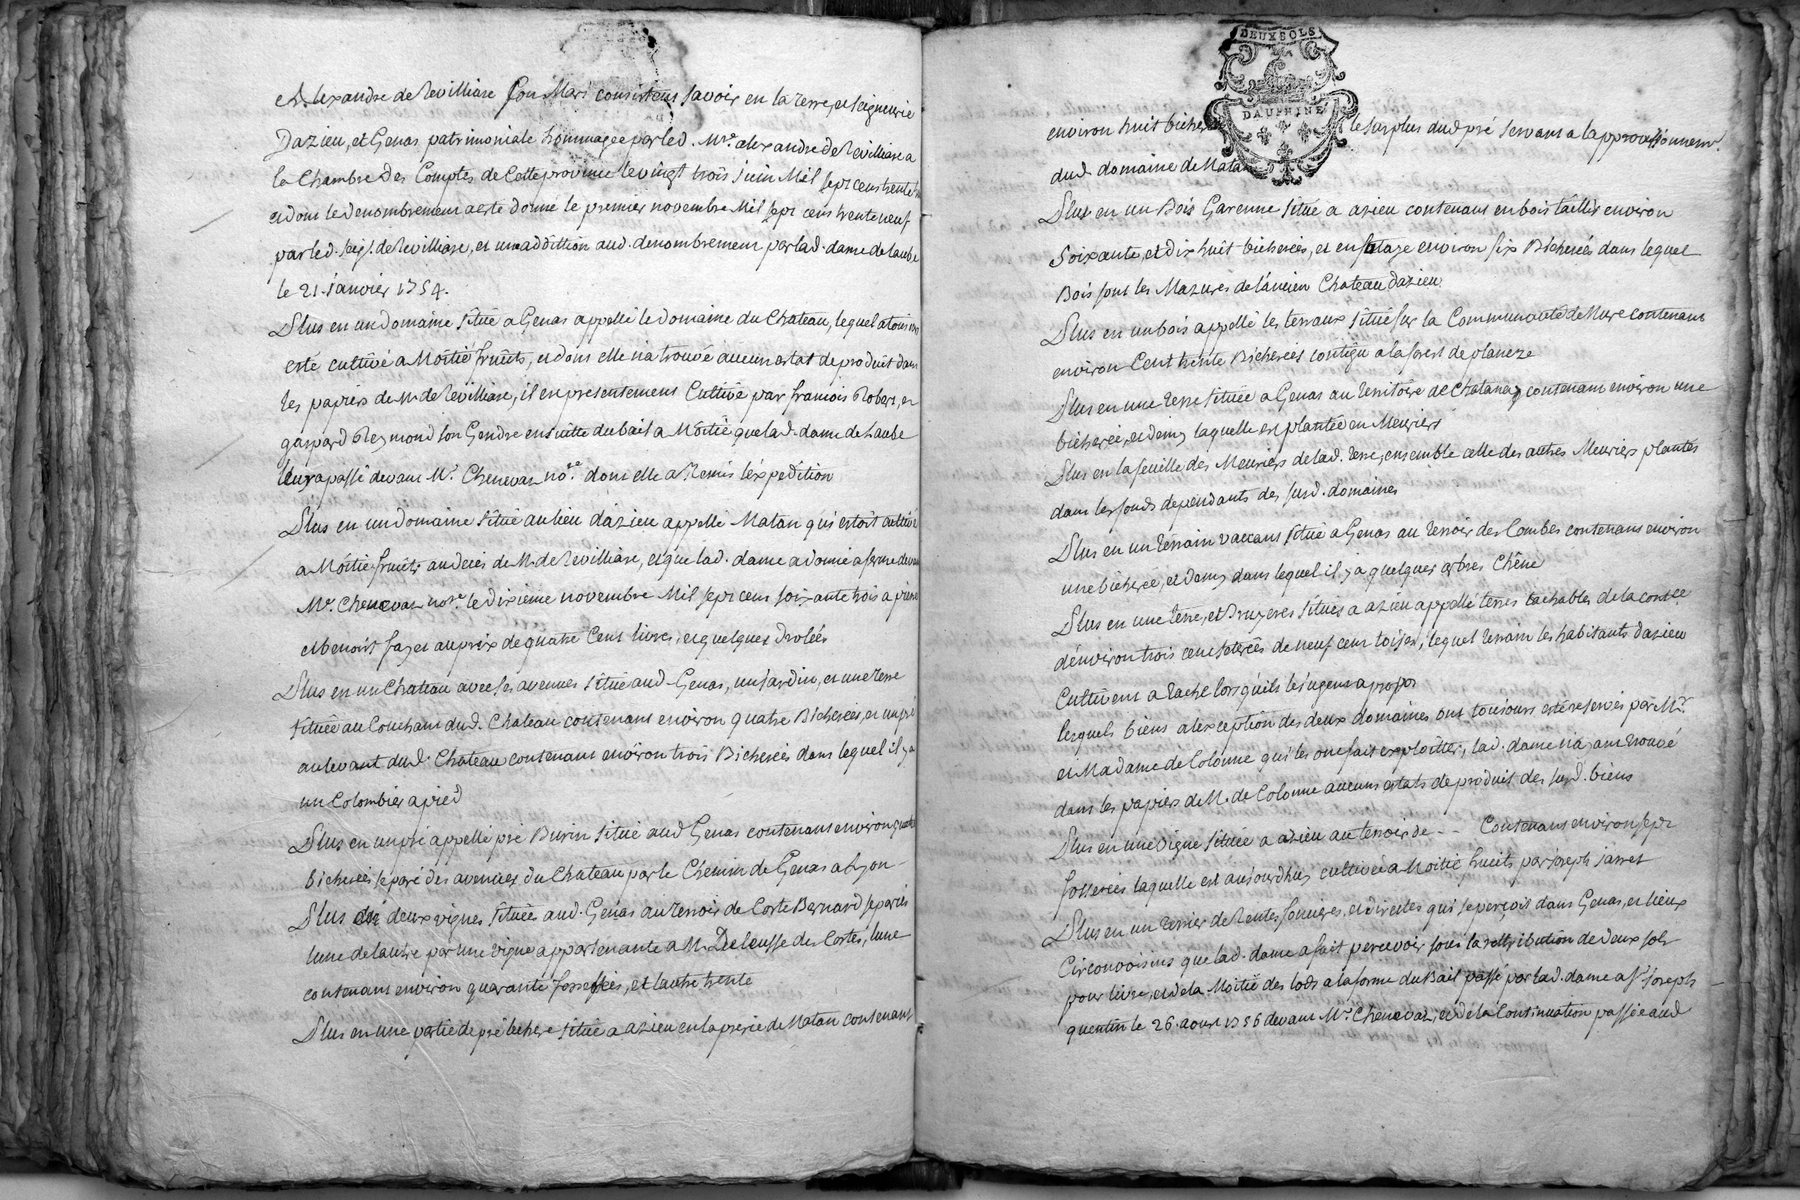 alexandre de Revilliase son Mari consistens savoir en la terre, et seigneurie
Dazieu, et Genas patrimoniale hommagée par led. Mre. alexandre de Revilliase a
la Chambre des Comptes de Cette province le vingt trois juin Mil sept cens trente
et dont le denombrement a esté donné le premier novembre Mil sept cens trente neuf
par led. seigr. de Revilliase, et une addittion aud. denombrement par lad. dame de Laube
le 21. Janvier 1754.
Plus en un domaine situé a Genas appellé le domaine du Chateau, lequel a toujours
esté cultivé a Moitié fruits, et dont elle n'a trouvé aucun estat de produit dans
les papiers de M. de Revilliase, il est presentement Cultivé par francois Robert, et
gaspard Reymond son Gendre ensuitte du bail a Moitié que lad. dame de Laube
leur a passé devant Me. Chenevaz nore. dont elle a Remis l'expedition
Plus en un domaine situé au lieu d'azieu appellé Matan qui estoit cultivé
a Moitié fruits au deces de M. de Revilliase, et que lad. dame a donné a ferme devant
Me. Chenevaz nore. le dixieme novembre Mil sept cens soixante trois a pierre
et benoist fayet au prix de quatre Cent livres, et quelques Drolées
Plus en un Chateau avec ses avenues situé aud. Genas, un Jardin, et une terre
situeé au Couchant dud. Chateau contenant environ quatre Bicherées, et un pré
au levant dud. Chateau contenant environ trois Bicherées dans lequel il y a
un Colombier a pied
Plus en un pré appellé pré Burin situé aud Genas contenant environ quatre
bicherées separé des avenües du Chateau par le Chemin de Genas a Lyon
Plus en deux vignes situées aud. Genas au terroir de Corte Bernard separées
l'une de l'autre par une vigne appartenante a M. Deleusse des Cortes, l'une
contenant environ quarante fosserées, et l'autre trente
Plus en une partie de pré situé a azieu en la prerie de Matan contenant
environ huit le surplus dud pré servant a
dud. domaine de Matan
Plus en un Bois Garenne situé a azieu contenant en bois taillis environ
soixante, et dix huit bicherées, et en futaye environ six Bicherées dans lequel
Bois sont les Mazures de l'ancien Chateau dazieu
Plus en un bois appellé les terraux situé sur la Communauté de Mure contenant
environ Cent trente Bicherées contigu a la forest de planeze
Plus en une terre située a Genas au territoire de contenant environ une
bicherée, et demy laquelle est plantée en Meuriers
Plus en la feuille des Meuriers de lad. terre, ensemble celle des autres Meuriers plantés
dans les fonds dependants des susd. domaines
Plus en un terrain vaccant situé a Genas au terroir des Combes contenant environ
une bicherée, et demy dans lequel il y a quelques arbres Chêne
Plus en une terre, et Bruyeres situés a azieu appellé terres tachables de la contce.
d'environ trois cent seterées de neuf cent toises, lequel terrain les habitants dazieu
Cultivent a tache lors qu'ils le jugent a propos
lesquels biens a lexception des deux domaines ont toujours esté reservés par Mr.
et Madame de Colonne qui les ont fait exploitter, lad. dame n'ayant trouvé
dans les papiers de M. de Colonne aucuns estats de produit des susd. biens
Plus en une vigne située a azieu au terroir de -- Contenant environ sept
fosserées laquelle est aujourdhuy cultivée a Moitié fruits par joseph jarret
Plus en un terrier de Rentes foncieres, et directes qui se perçoit dans Genas, et lieux
Circonvoisins que lad. dame a fait percevoir sous la rettribution de deux sols
pour livre, et de la Moitié des lods a la forme du Bail passé par lad. dame a Sr. joseph
quentin le 26. aoust 1756 devant Me. Chenevaz, et de la Continuation passée aud
DEUX SOLS
DAUPHINE